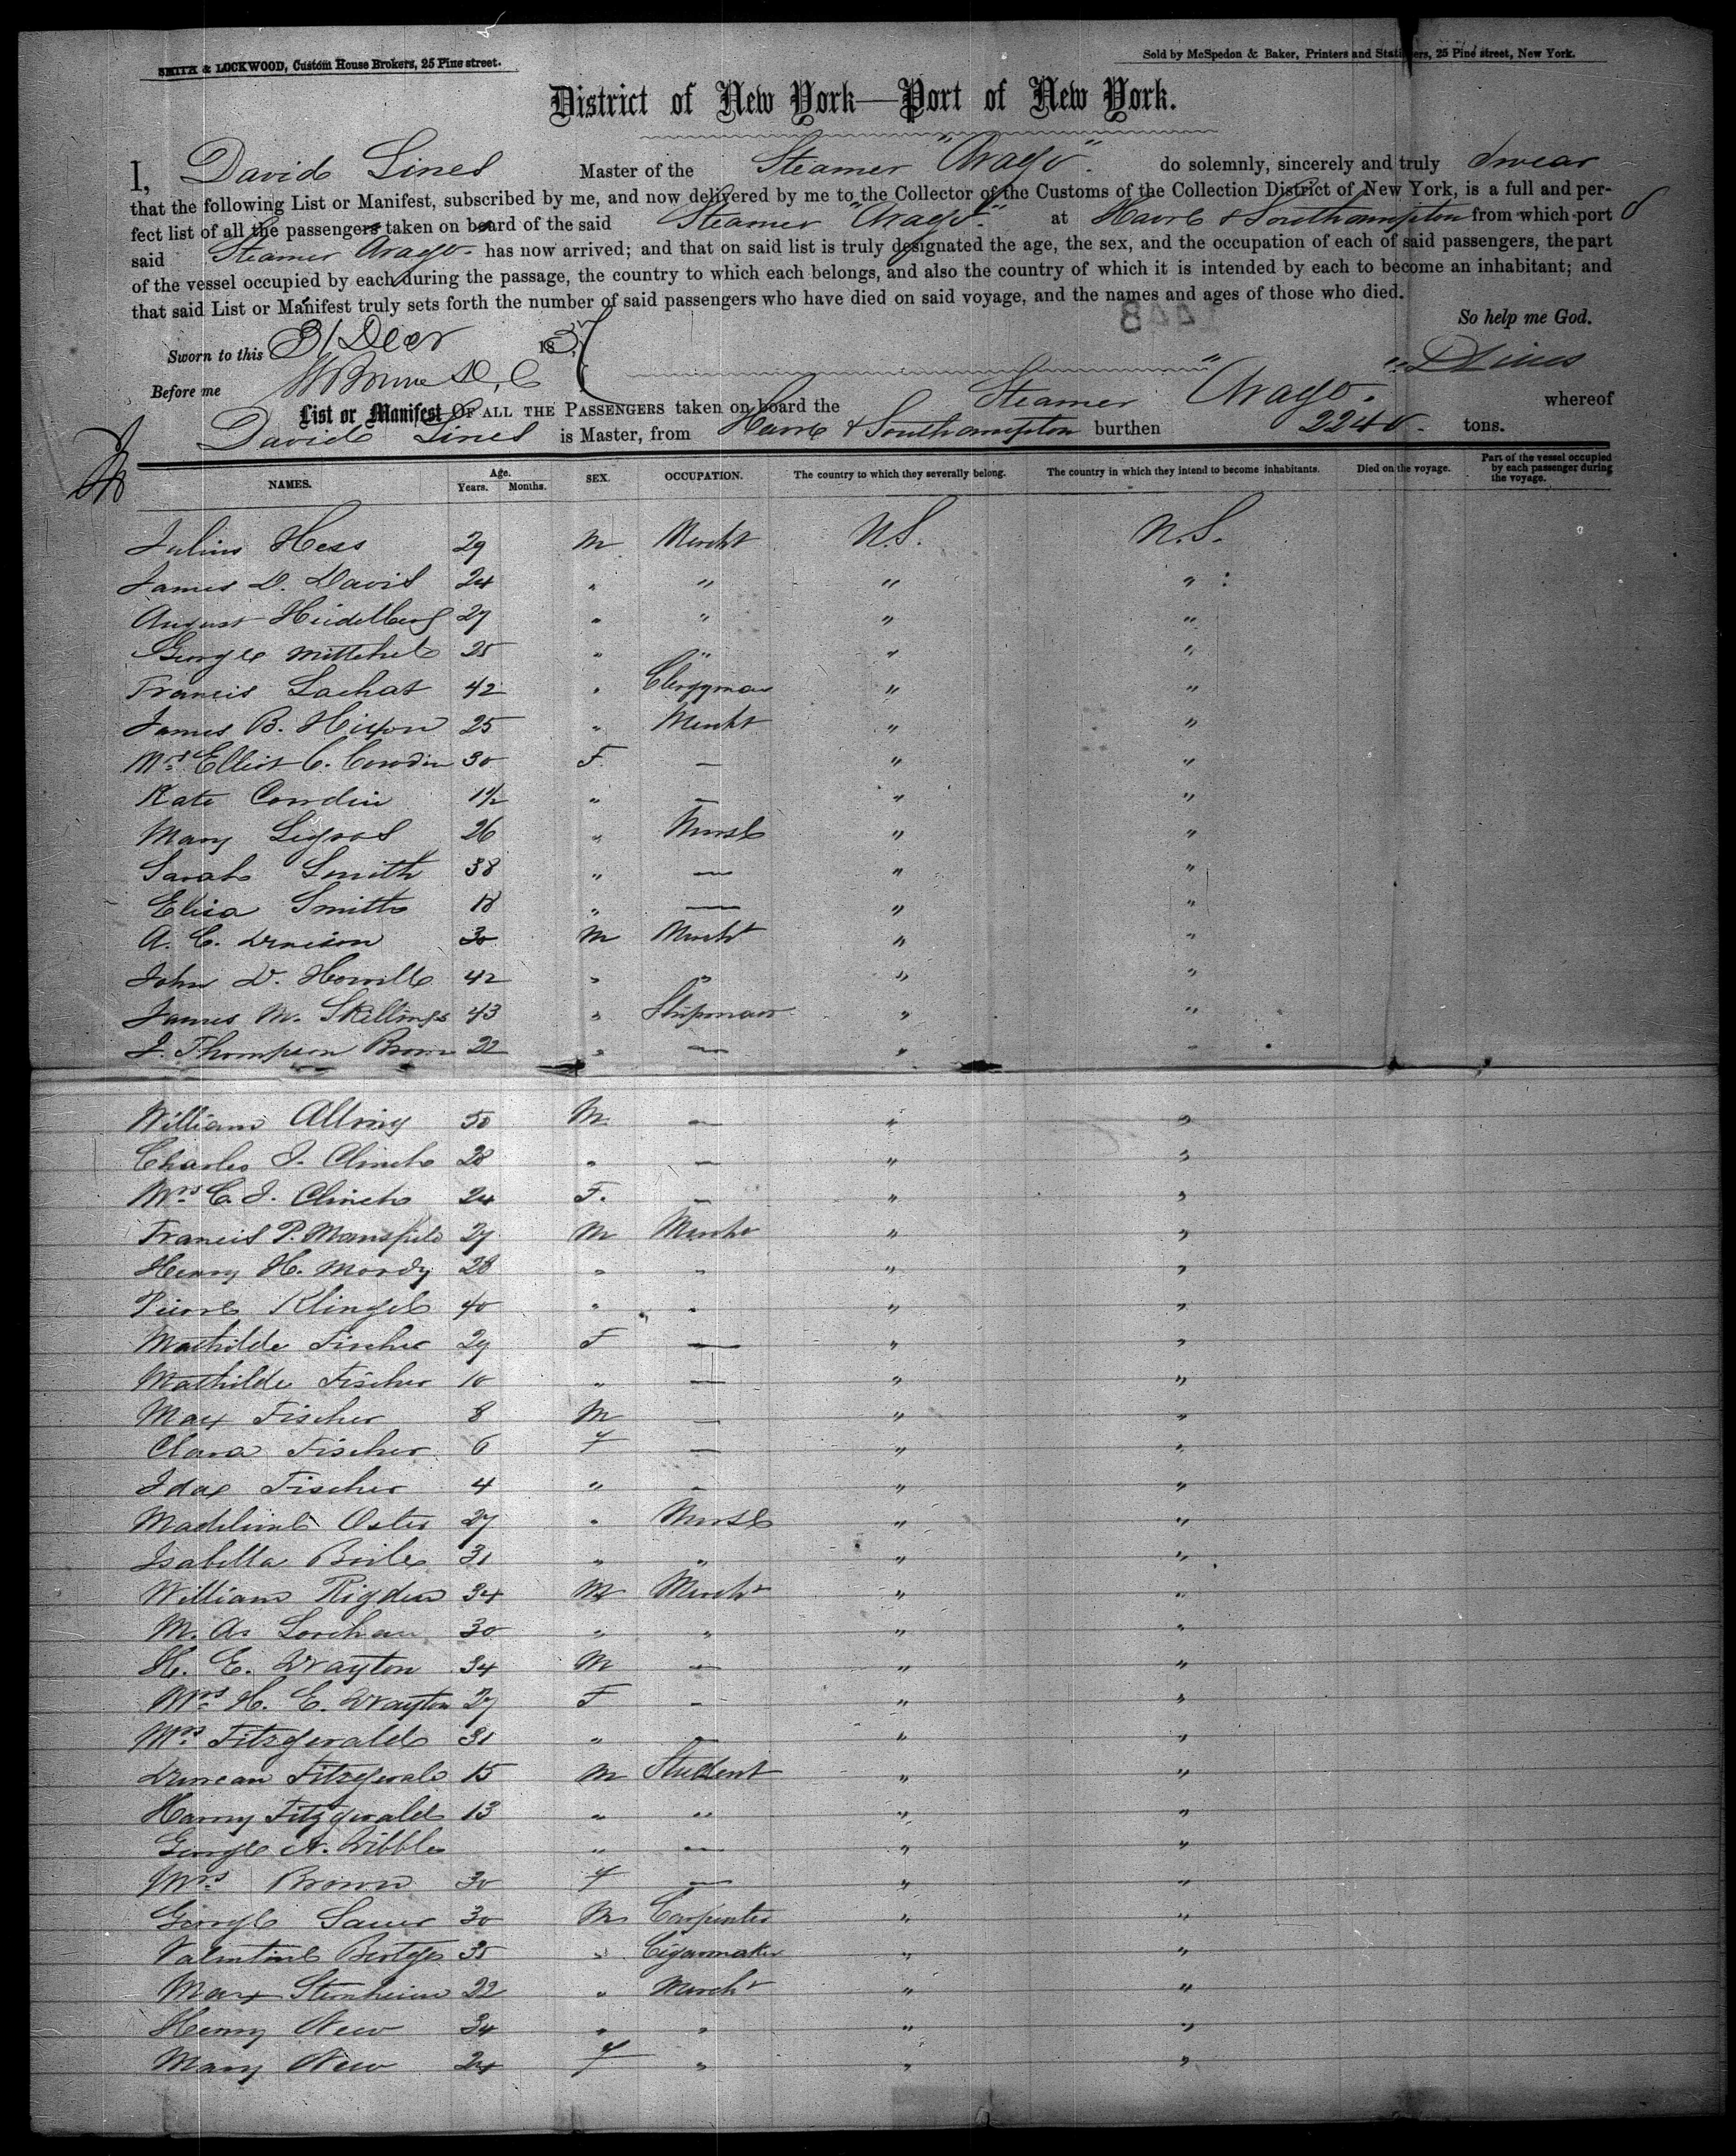 SMITH & LOCKWOOD, Custom House Brokers, 25 Pine street.
Sold by McSpedon & Baker, Printers and Stationers, 25 Pine street, New York.
District of New York—Port of New York.
I, David Lines Master of the Steamer "Arago". do solemnly, sincerely and truly Swear
that the following List or Manifest, subscribed by me, and now delivered by me to the Collector of the Customs of the Collection District of New York, is a full and per-
fect list of all the passengers taken on board of the said Steamer "Arago." at Havre & Southampton from which port
said Steamer Arago. has now arrived; and that on said list is truly designated the age, the sex, and the occupation of each of said passengers, the part
of the vessel occupied by each during the passage, the country to which each belongs, and also the country of which it is intended by each to become an inhabitant; and
that said List or Manifest truly sets forth the number of said passengers who have died on said voyage, and the names and ages of those who died.
So help me God.
Sworn to this 31 Decr 185
Before me D, C
D Lines
List or Manifest OF ALL THE PASSENGERS taken on board the Steamer "Arago. " whereof
David Lines is Master, from Havre & Southampton burthen 2240. tons.
NAMES. Age. Years. Months. SEX. OCCUPATION. The country to which they severally belong. The country in which they intend to become inhabitants. Died on the voyage. Part of the vessel occupied by each passenger during the voyage.
Julius Hess 29 M Mercht U.S. U.S.
James D. Davis 24 " " " "
August Heidelberg 27 " " " "
George Mittchel 25 " " " "
Francis Lachat 42 " Clergyman " "
James B. Hixon 25 " Mercht " "
Mrs Elliot C. Cowdin 30 F. — " "
Kate Cowdin 1½ " — " "
Mary Legros 26 " Nurse " "
Sarah Smith 38 " — " "
Elisa Smith 18 " — " "
A. C. Denison 30 M Mercht " "
John D. Howell 42 " " " "
James M. Skillings 43 " Shipman " "
J. Thompson Brown 22 " — " "
William Alling 50 M. — " "
Charles J. Clinch 28 " — " "
Mrs C. J. Clinch 24 F. — " "
Francis P. Mansfield 27 M Mercht " "
Henry H. Mordy 28 " " " "
Pierre Klingel 40 " " " "
Mathilde Fischer 29 F — " "
Mathilde Fischer 10 " — " "
Max Fischer 8 M — " "
Clara Fischer 6 F — " "
Ida Fischer 4 " — " "
Madeline Oster 27 " Nurse " "
Isabella 31 " " " "
William Rigden 34 M Mercht " "
M. A. 30 " " " "
H. E. Drayton 34 M — " "
Mrs H. E. Drayton 27 F — " "
Mrs Fitzgerald 31 " — " "
Duncan Fitzgerald 15 M Student " "
Harry Fitzgerald 13 " " " "
George A. Dibble " — " "
Mrs Brown 30 F — " "
George Sauer 30 M Carpenter " "
Valentine 35 " Cigarmaker " "
Max Sternheim 22 " Mercht " "
Henry New 34 " " " "
Mary New 24 F " " "